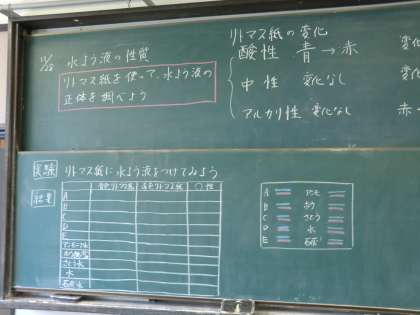 水よう液の性質
リトマス紙を使って、水よう液の
正体を調べよう
リトマス紙の変化
酸性 青→赤
中性 変化なし
アルカリ性 変化なし 赤
実験 リトマス紙に水よう液をつけてみよう
結果
青色リトマス紙 赤色リトマス紙 ○性
A
B
C
D
E
さとう水
水
石灰水
A
B
C さとう
D 水
E 石灰